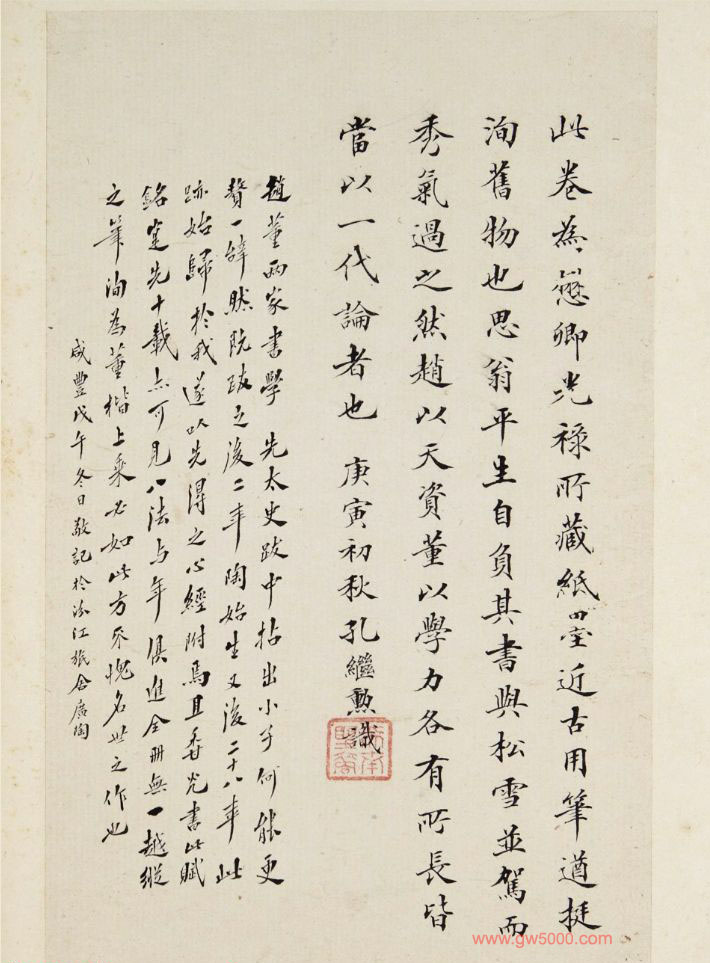 此卷為懋卿光祿所藏紙墨近古用筆遒挺
洵舊物也思翁平生自負其書與松雪並駕而
秀氣過之然趙以天資董以學力各有所長皆
當以一代論者也 庚寅初秋孔繼勲識
趙董兩家書學 先太史跋中拈出小子何能更
贅一辭然阮跋之後二年陶始生又後二十八年此
跡始歸於我遂以先得之心經附焉且香光書此賦
銘室先十載亦可見八法与年俱進全冊無一越縱
之筆洵為董楷上乘必如此方不愧名世之作也
咸豐戊午冬日敬記於汾江旅舍廣陶
www.gw5000.com